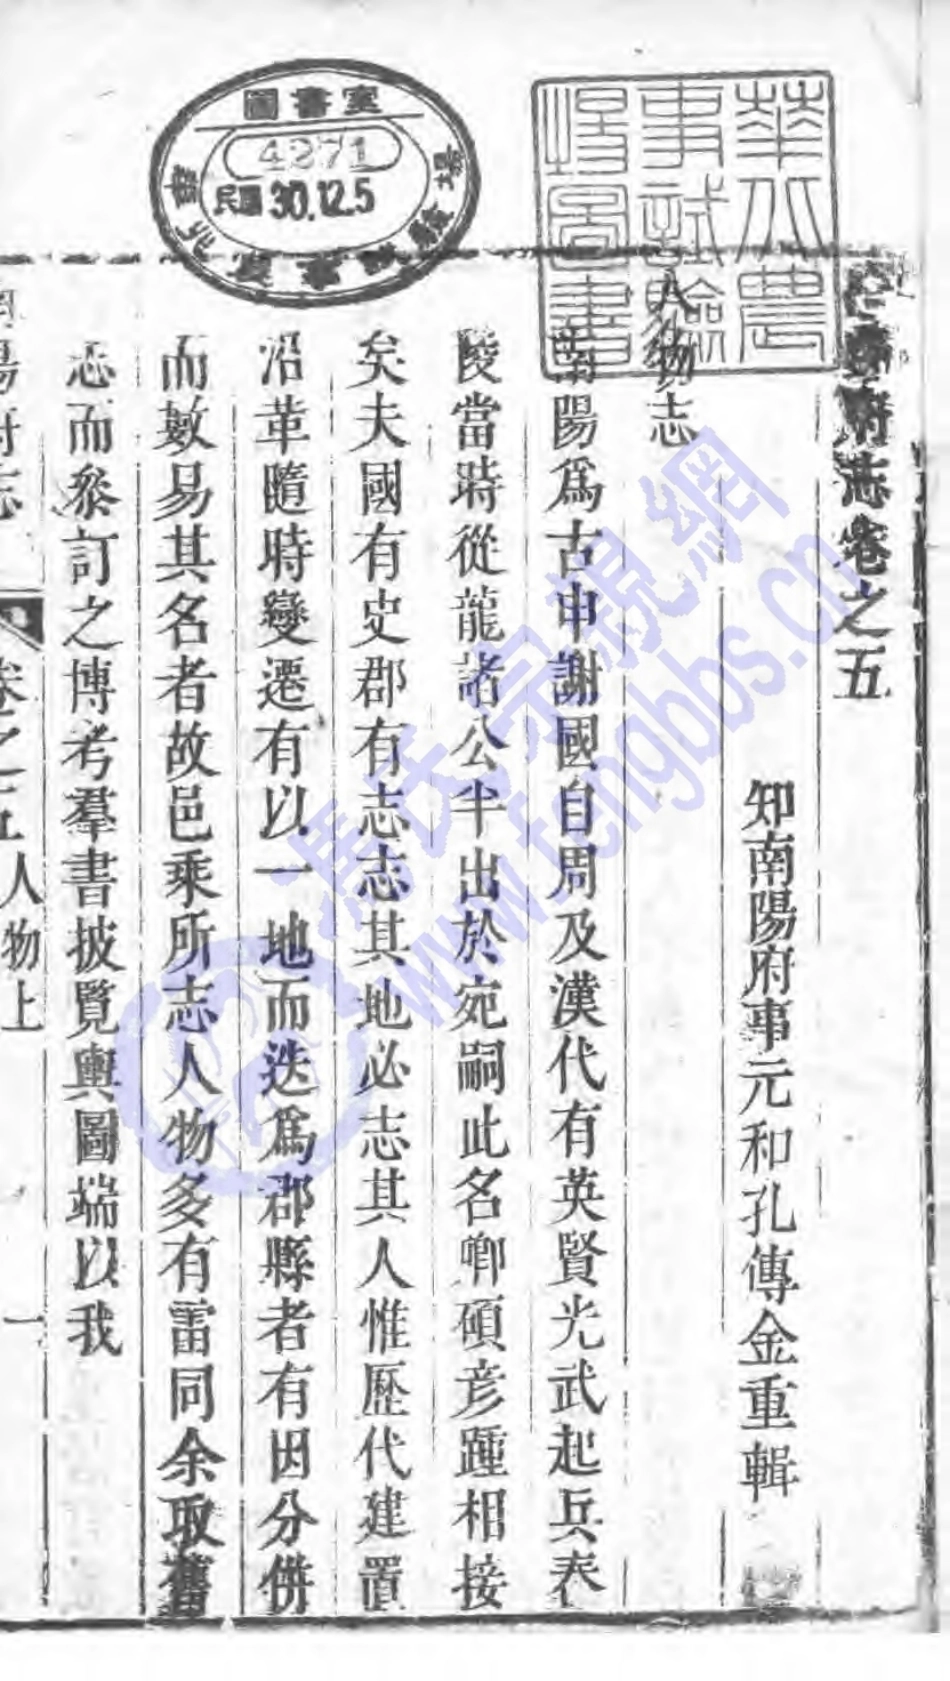 圖書室
4271
民國30.12.5
華北農
事試驗
場圖書
府志卷之五
知南陽府事元和孔傳金重輯
人物志
南陽爲古申謝國自周及漢代有英賢光武起兵舂
陵當時從龍諸公半出於宛嗣此名卿碩彦踵相接
矣夫國有史郡有志志其地必志其人惟歷代建置
沿革隨時變遷有以一地而迭爲郡縣者有因分併
而數易其名者故邑乘所志人物多有雷同余取舊
志而叅訂之博考羣書披覽輿圖端以我
陽府志
卷之五
人物上
一
馮氏宗親網
www.fengbbs.cn